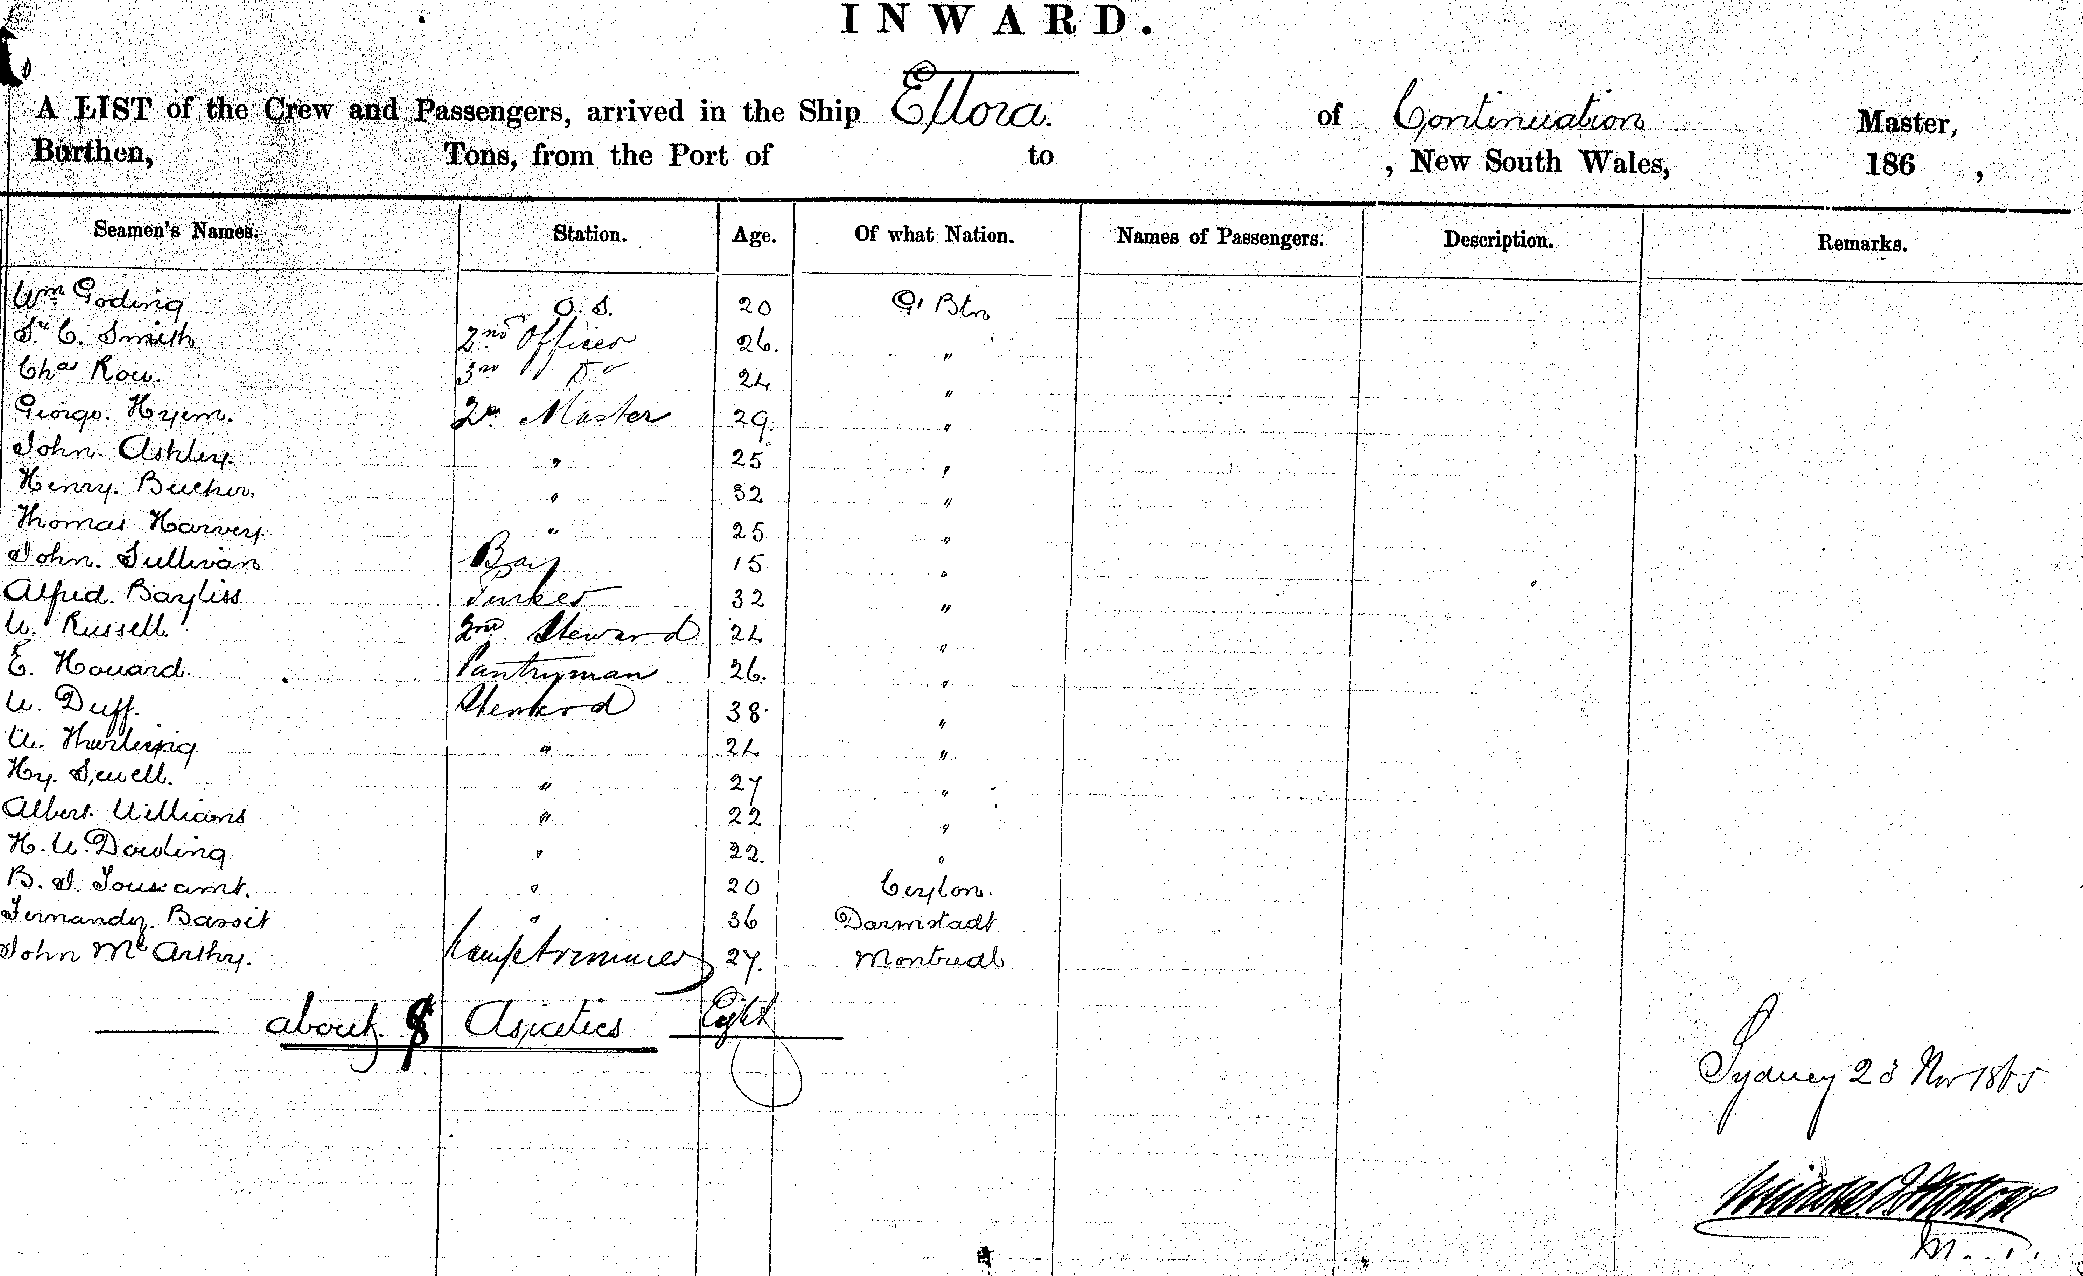 INWARD.
A LIST of the Crew and Passengers, arrived in the Ship Ellora. of Continuation Master,
Burthen, Tons, from the Port of to , New South Wales, 186 ,
Seamen's Names. Station. Age. Of what Nation. Names of Passengers. Description. Remarks.
Wm Goding O. S. 20 Gt Btn
C. Smith 2nd Officer 26. "
Chas Row. 3rd Do 24 "
George. Hyem. 2r. Master 29. "
John. Ashley. " 25 "
Henry. Bucher. " 32 "
Thomas Harvey. " 25 "
John. Sullivan Boy 15 "
Alfred. Bayliss 32 "
W. Russell 2nd Steward 24 "
E. Howard. Pantryman 26. "
W. Duff. Steward 38. "
W. " 24 "
Hy. Sewell. " 27 "
Albert. Williams " 22 "
H. W. Dowding " 22. "
B. J. Toussamt. " 20 Ceylon.
Fernandez. Bassit " 36 Darmstadt
John McArthy. Lamptrimmer 27. Montreal
about 8 Asiatics Eight
Sydney 23 Nov 1865